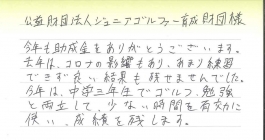 公益財団法人ジュニアゴルファー育成財団様
今年も助成金をありがとうございます。
去年は、コロナの影響もあり、あまり練習
できず良い結果も残せませんでした。
今年は、中学三年生でゴルフ、勉強
と両立して、少ない時間を有効に
使い、成績を残します。